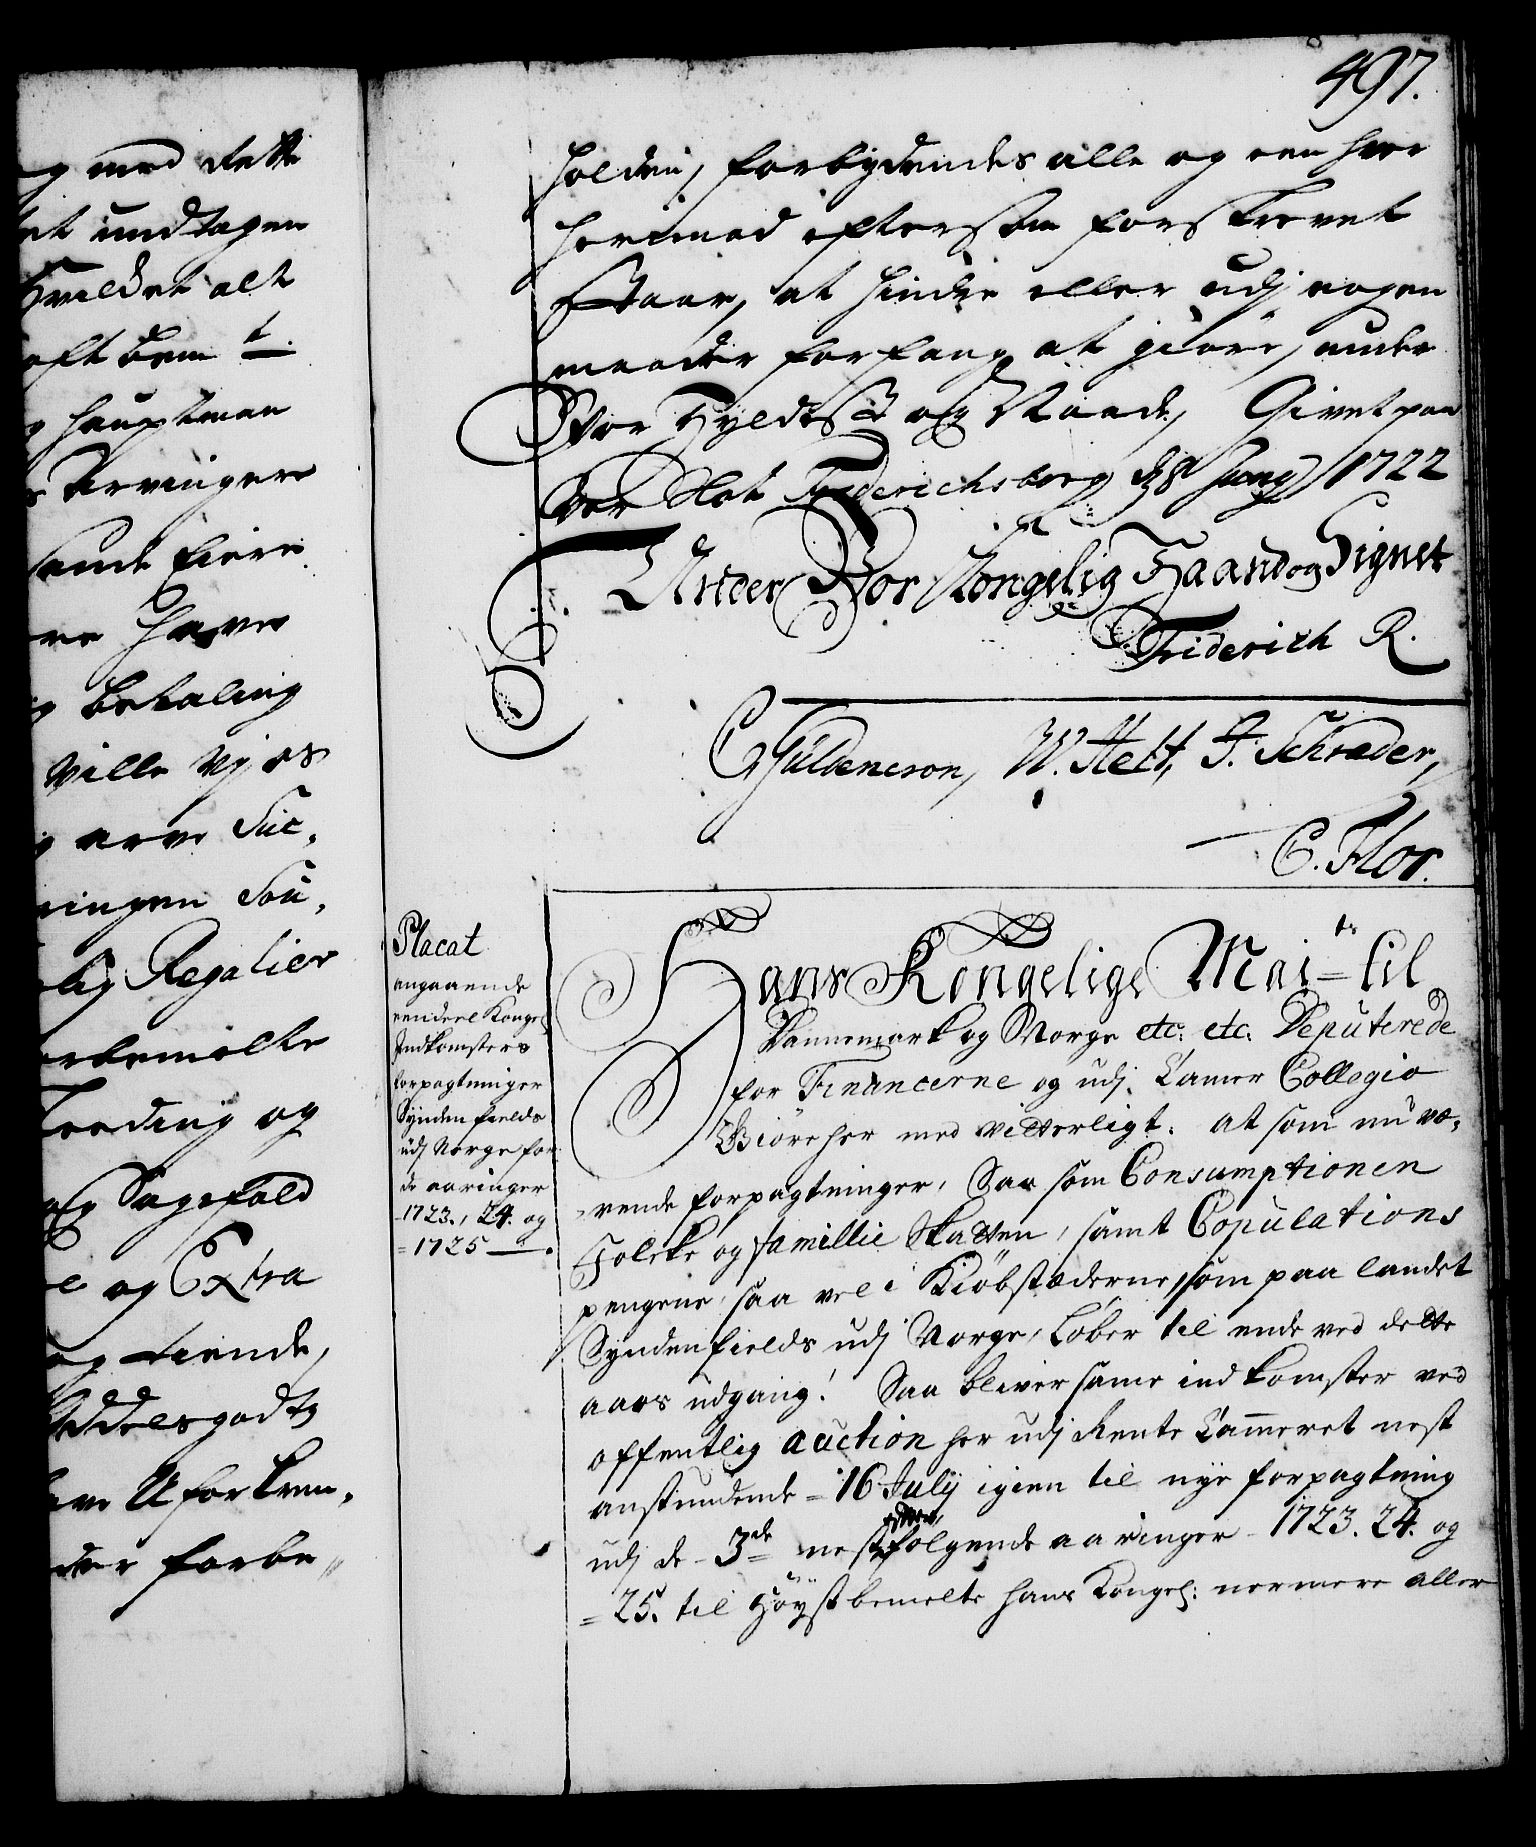 g med Rette
et undtagen
hvildet alt
oft bem t.
g hauptman
s Arvinger
sande Eiere
re have
g betaling
ville Vj os
g arve Suc,
ningen Sou,
lig Regalier
rbemelte
Leeding og
og Sagefald
e og Extra
og tiende,
Oddelsgodtz
ave Uforkren,
der forbe,,
497.
holden, forbydendes alle og een hver
herimod eftersom forskrevet
staar, at hindre eller udj nogen
maader forfang at giøre, under
Vor Hyldist og Naade, Givet paa
Vor Slot Friderichsborg d. 8 Juny 1722
Under Vor Kongelig Haand og Signet
Friderich R.
C Güldencron, W. Hett, J. Schrader,
C. Flor.
Placat
angaaende
eendeel Kongel
Indkomsters
forpagtninger
Synden fields
udj Norge for
de aaringer
1723., 24. og
= 1725 —.
Hans Kongelige Mai=ts til
Dannemark og Norge etc. etc. Deputerede
for Financerne og udj Camer Collegio
Giøre her med vitterligt. at som nu væ,
rende forpagtninger, Saa som Consumptionen
Folcke og famillie Skatten, samt Copulations
pengene, saa vel i Kiøbstæderne, som paa landet
Syndenfields udj Norge, Løber til ende ved dette
aars udgang! Saa bliver same indkomster ved
offentlig auction her udj Rente Cammeret nest
anstundende = 16 July igien til nye forpagtning
udj de - 3de nest efter følgende aaringer - 1723. 24. og
= 25. til Høystbemelte hans Kongel: nermere aller